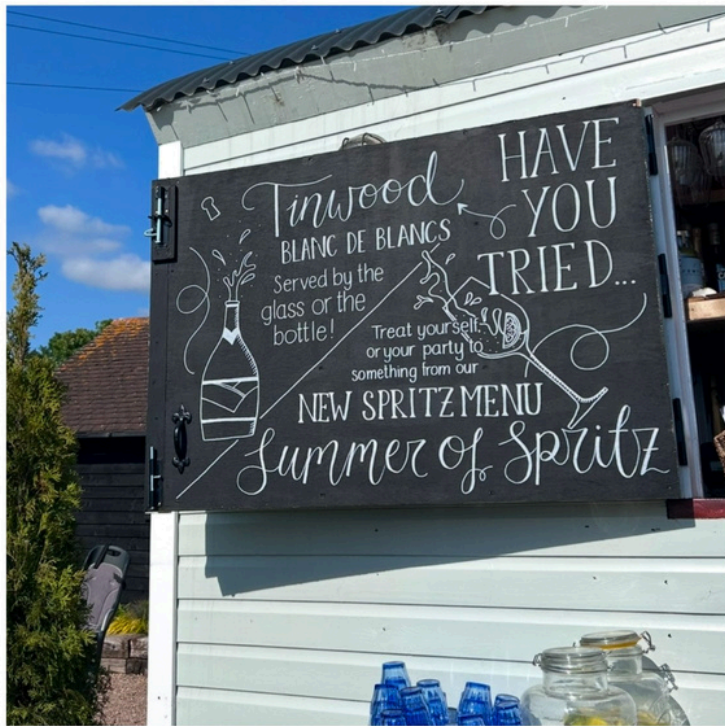 HAVE
YOU
TRIED...
Tinwood
BLANC DE BLANCS
Served by the
glass or the
bottle!
Treat yourself
or your party to
something from our
NEW SPRITZ MENU
Summer of Spritz